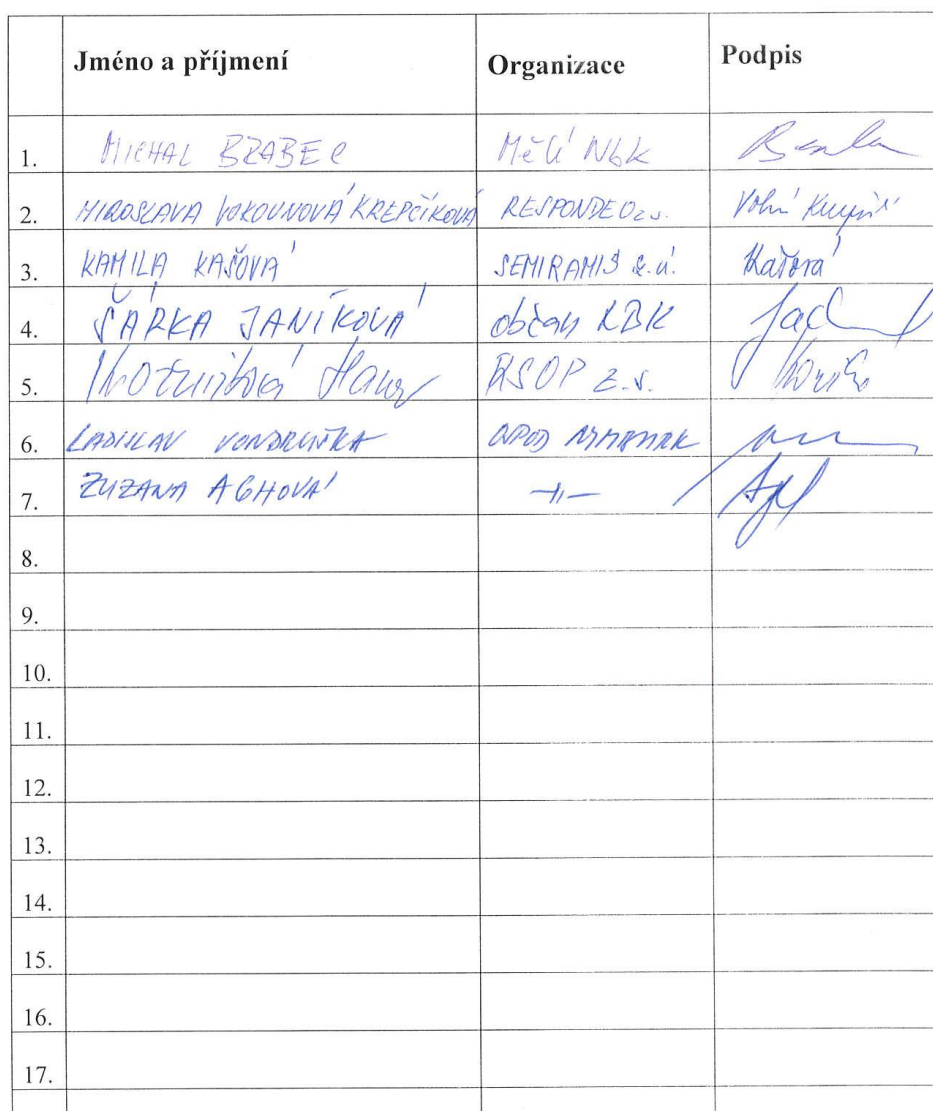 Jméno a příjmení Organizace Podpis
1. MICHAL BRABEC MěÚ NbK
2. MIROSLAVA VOKOUNOVÁ KREPČÍKOVÁ RESPONDEO z.s.
3. KAMILA KAŠOVÁ SEMIRAMIS z.ú. Kašová
4. ŠÁRKA JANÍKOVÁ občan NBK
5. Hana RSOP z.s.
6. LADISLAV VONDRUŠKA OPOD
7. ZUZANA AGHOVÁ -||-
8.
9.
10.
11.
12.
13.
14.
15.
16.
17.